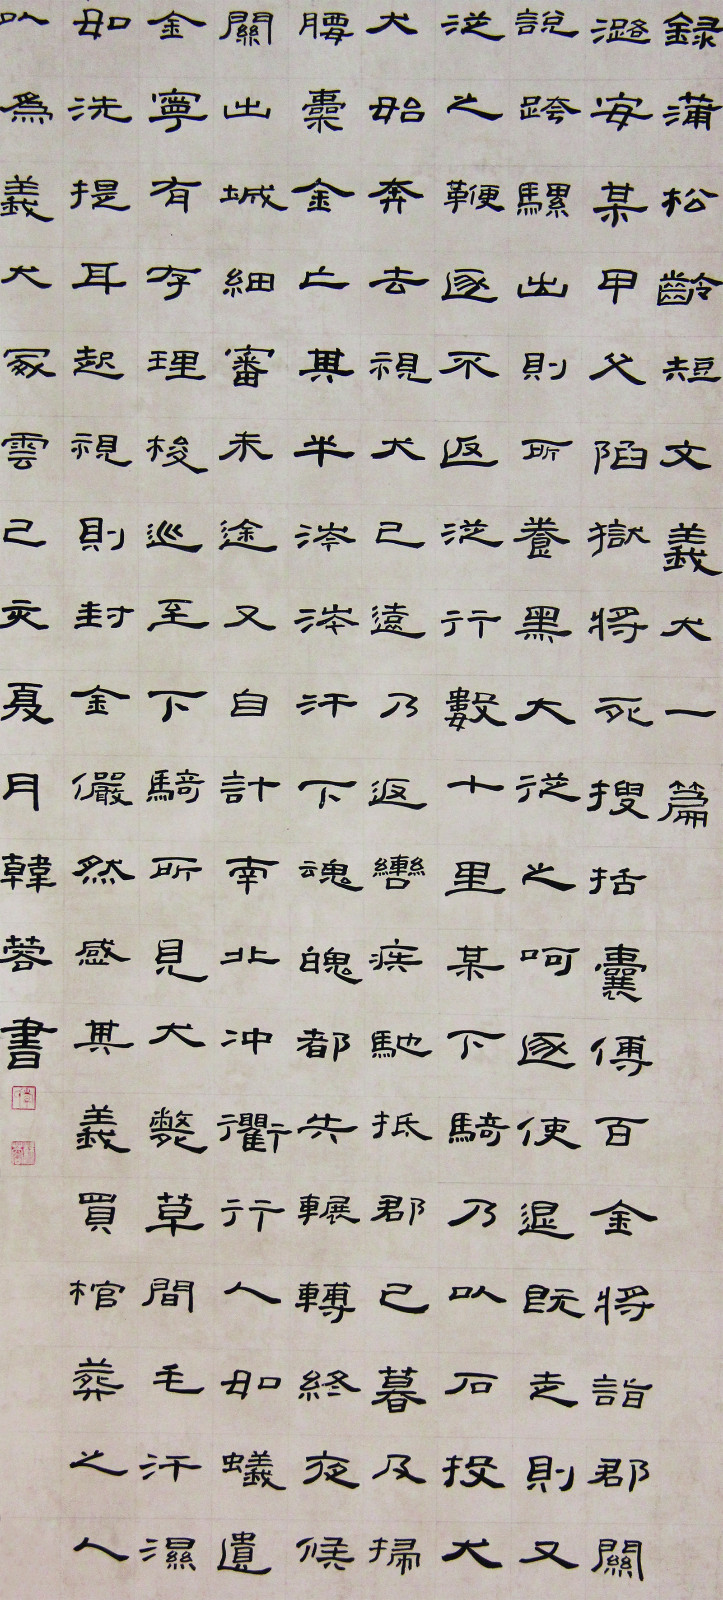 録蒲松齡短文義犬一篇
潞安某甲父陷獄將死搜括囊傅百金將詣郡關
說跨騾出則所養黑大從之呵逐使退既走則又
從之鞭逐不返從行數十里某下騎乃以石投犬
犬始奔去視犬已遠乃返轡疾馳抵郡已暮及掃
腰橐金亡其半涔涔汗下魂魄都失輾轉終夜候
關出城細審未途又自計南北沖衢行人如蟻遺
金寧有存理梭巡至下騎所見犬斃草間毛汗濕
如洗提耳起視則封金儼然感其義買棺葬之人
以為義犬冢雲己亥夏月韓蓉書